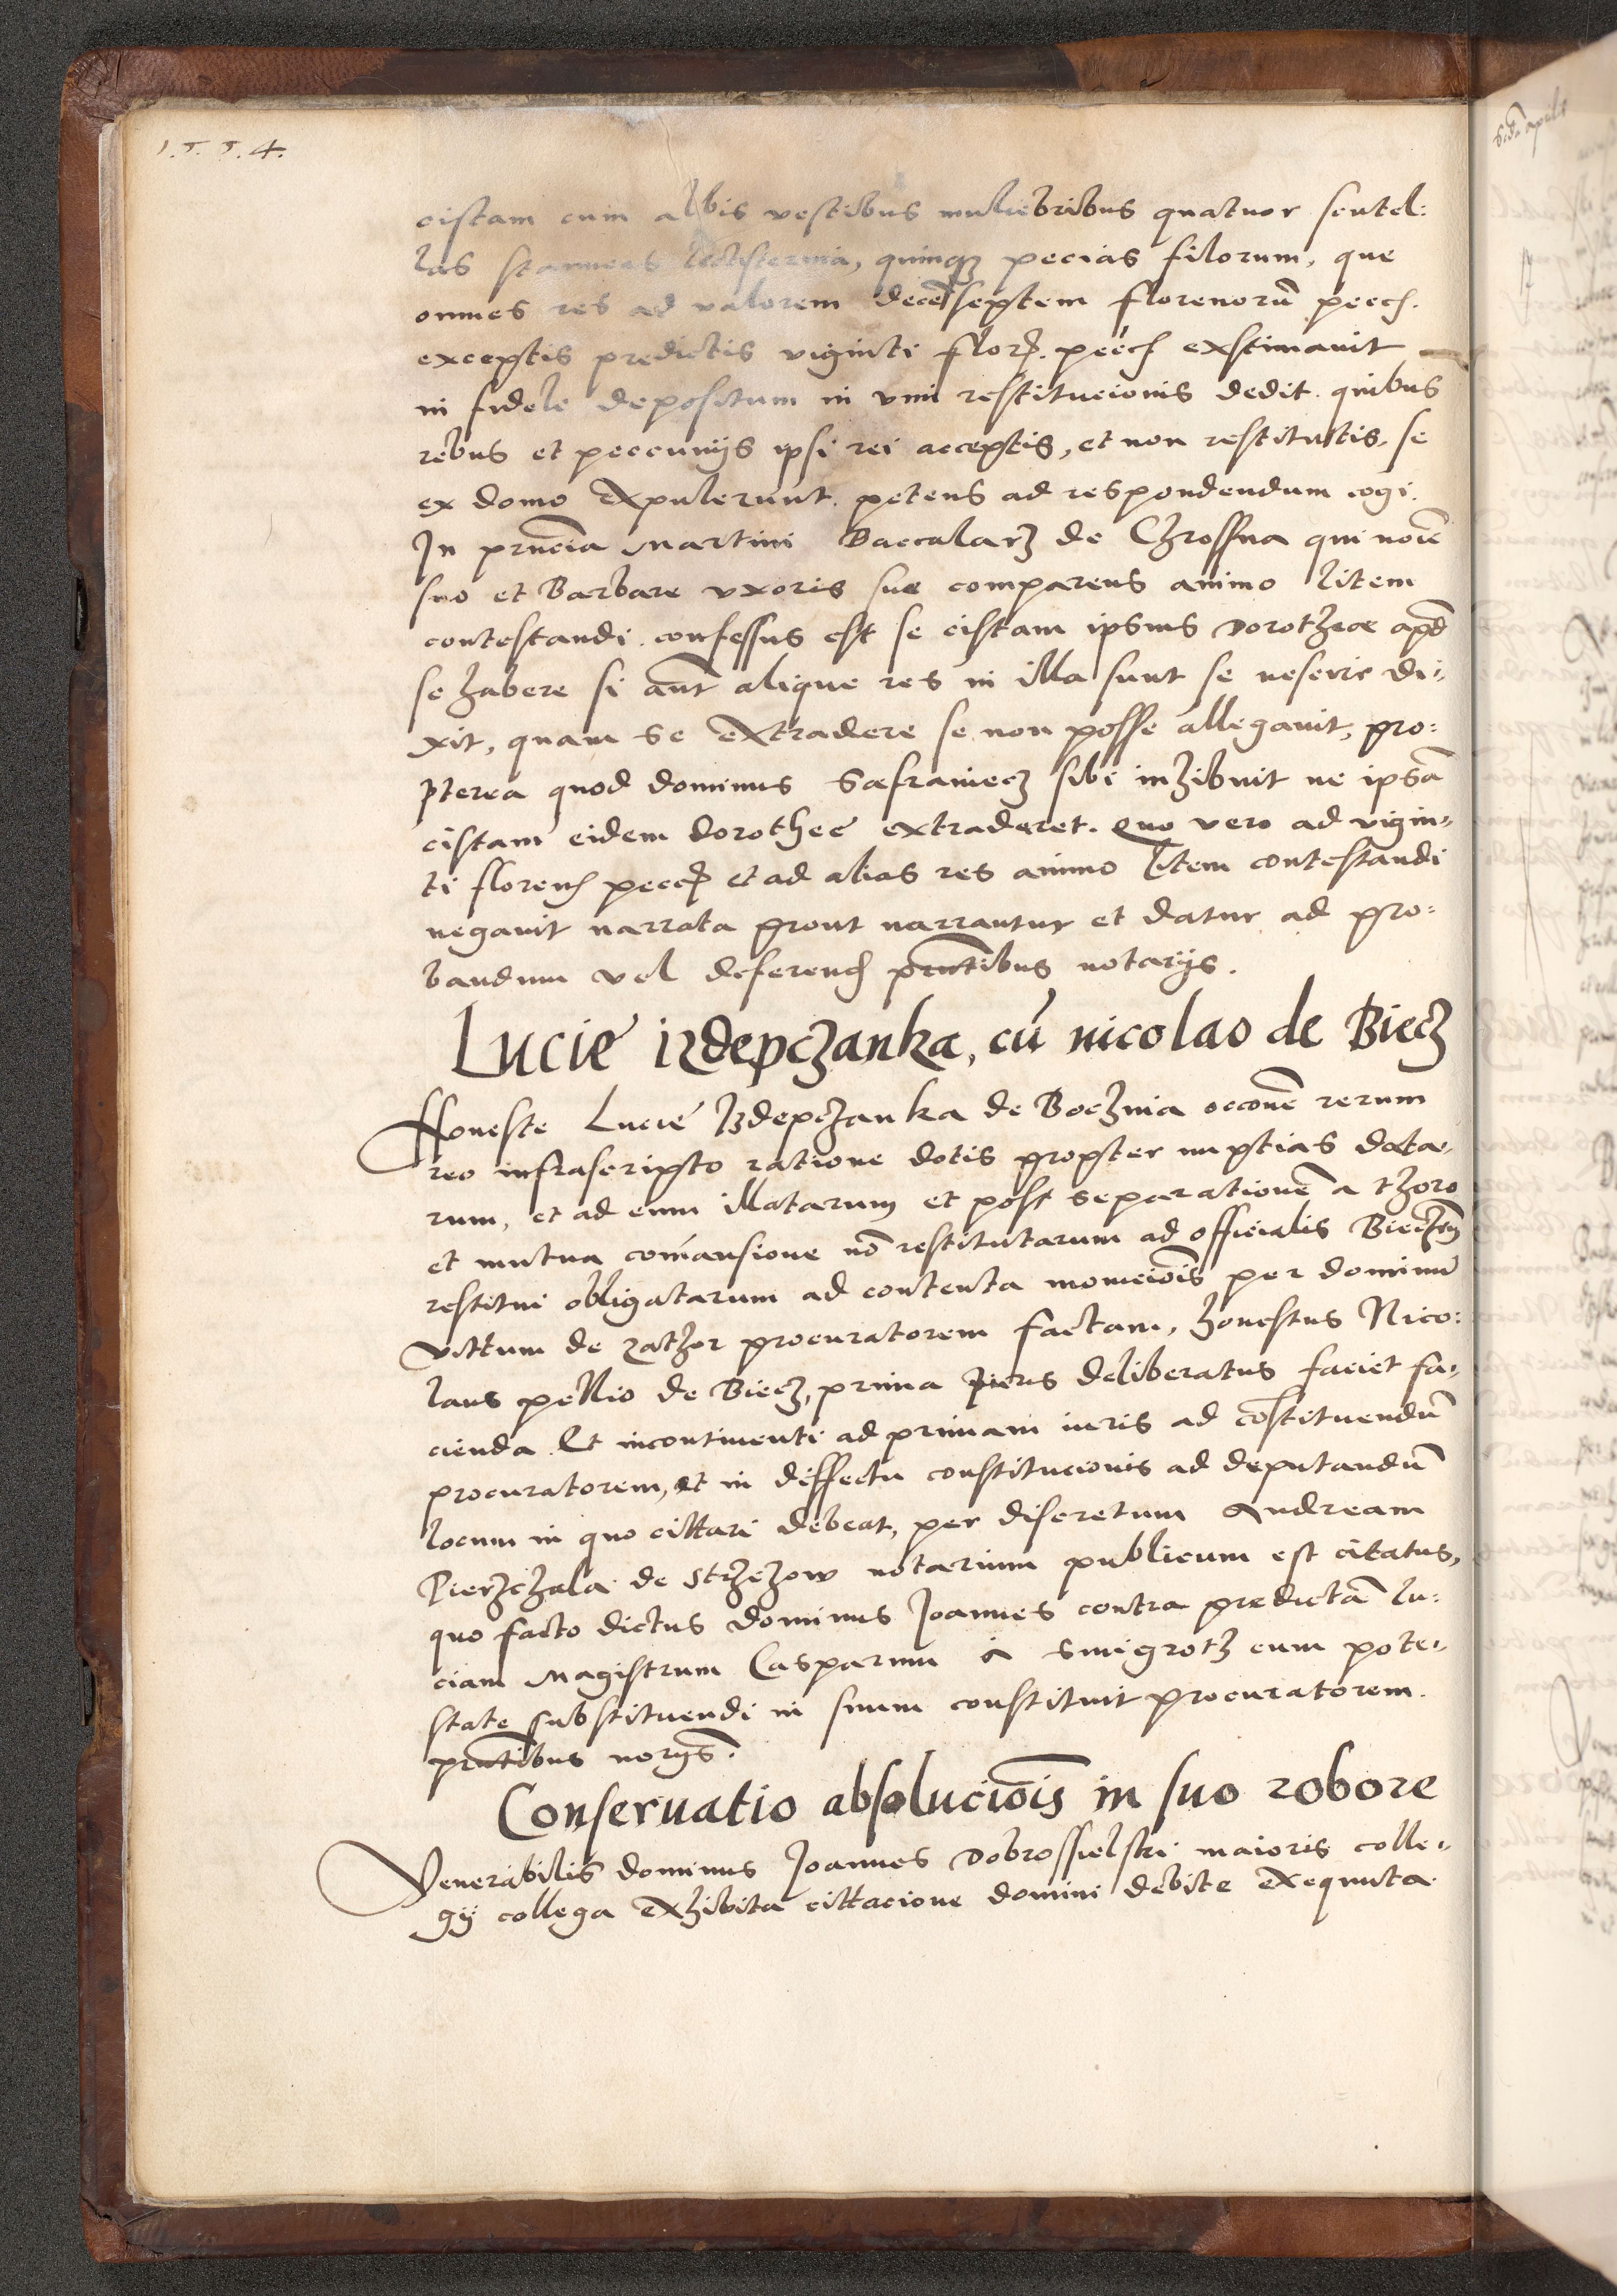 1.5.5.4.
cistam cum albis vestibus muliebribus quatuor scutel:
las stanneas lectisternia, quinq₃ pecias filorum, que
omnes res ad valorem decē septem florenorū pecc.
exceptis predictis viginti flor. pecc existimavit
in fidele depositum in vim restitucionis dedit. quibus
rebus et peccunijs ipsi rei acceptis, et non restitutis, se
ex domo expulerunt. petens ad respondendum cogi.
In pñcia Martini Baccalarz de Chrossna qui noīe
suo et Barbare vxoris sue comparens animo litem
contestandi. confessus est se cistam ipsius Dorotheae apd
se habere si aūt alique res in illa sunt se nescire di,
xit, quam se extradere se non posse allegavit, pro:
pterea quod dominus Safraniecz sibi inhibuit ne ipsā
cistam eidem dorothee extraderet. Quo vero ad vigin,
ti floren pecc et ad alias res animo litem contestandi
negavit narrata prout narrantur et datur ad pro:
bandum vel deferend pñtibus notarijs.
Lucie izdepczanka, cū nicolao de Biecz
Honeste Lucie Izdepczanka de Bochnia occōne rerum
reo infrascripto ratione dotis propter nuptias data,
rum, et ad eum illatarum et post separationē a thoro
et mutua comansione nō restitutarum ad officialis Bieczen
restitui obligatarum ad contenta monicionis per dominū
vittum de zathor procuratorem factam, honestus Nico:
laus pellio de Biecz, prima iuris deliberatus faciet fa,
cienda. Et incontinenti ad primam iuris ad cōstituendū
procuratorem, et in deffectu constitucionis ad deputandū
locum in quo cittari debeat, per discretum Andream
Pierzchala de Strzezow notarium publicum est citatus,
quo facto dictus dominus Joannes contra predictā lu:
ciam Magistrum Casparum a Smigrotz cum pote,
state substituendi in suum constituit procuratorem.
pñtibus norijs.
Conseruatio absoluciōis in suo robore
Venerabilis dominus Joannes Dobrossielski maioris colle,
gij collega exhibita cittacione domini debite exequuta